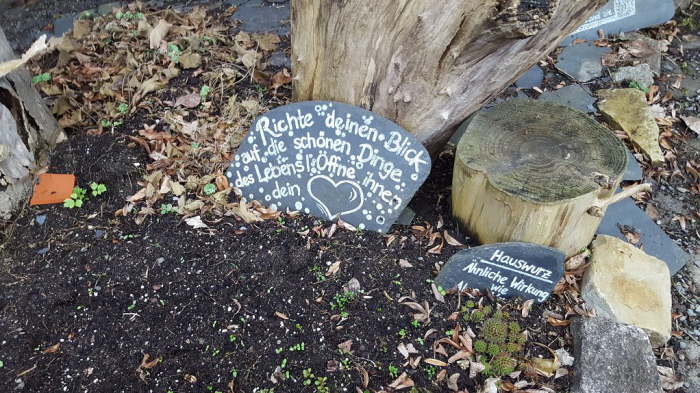 Richte deinen Blick
auf die schönen Dinge
des Lebens! Öffne ihnen
dein
Hauswurz
Ähnliche Wirkung
wie